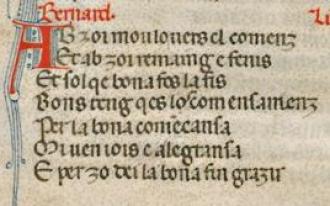 Bernard.
AB zoi mou louers el comenz
Et ab zoi remaing e fenis
Et sol qe bona fos la fis
Bons teng qes lo comensamenz
Per la bona comēcansa
Mi uen iois e alegransa
E per zo dei la bona fin grazir